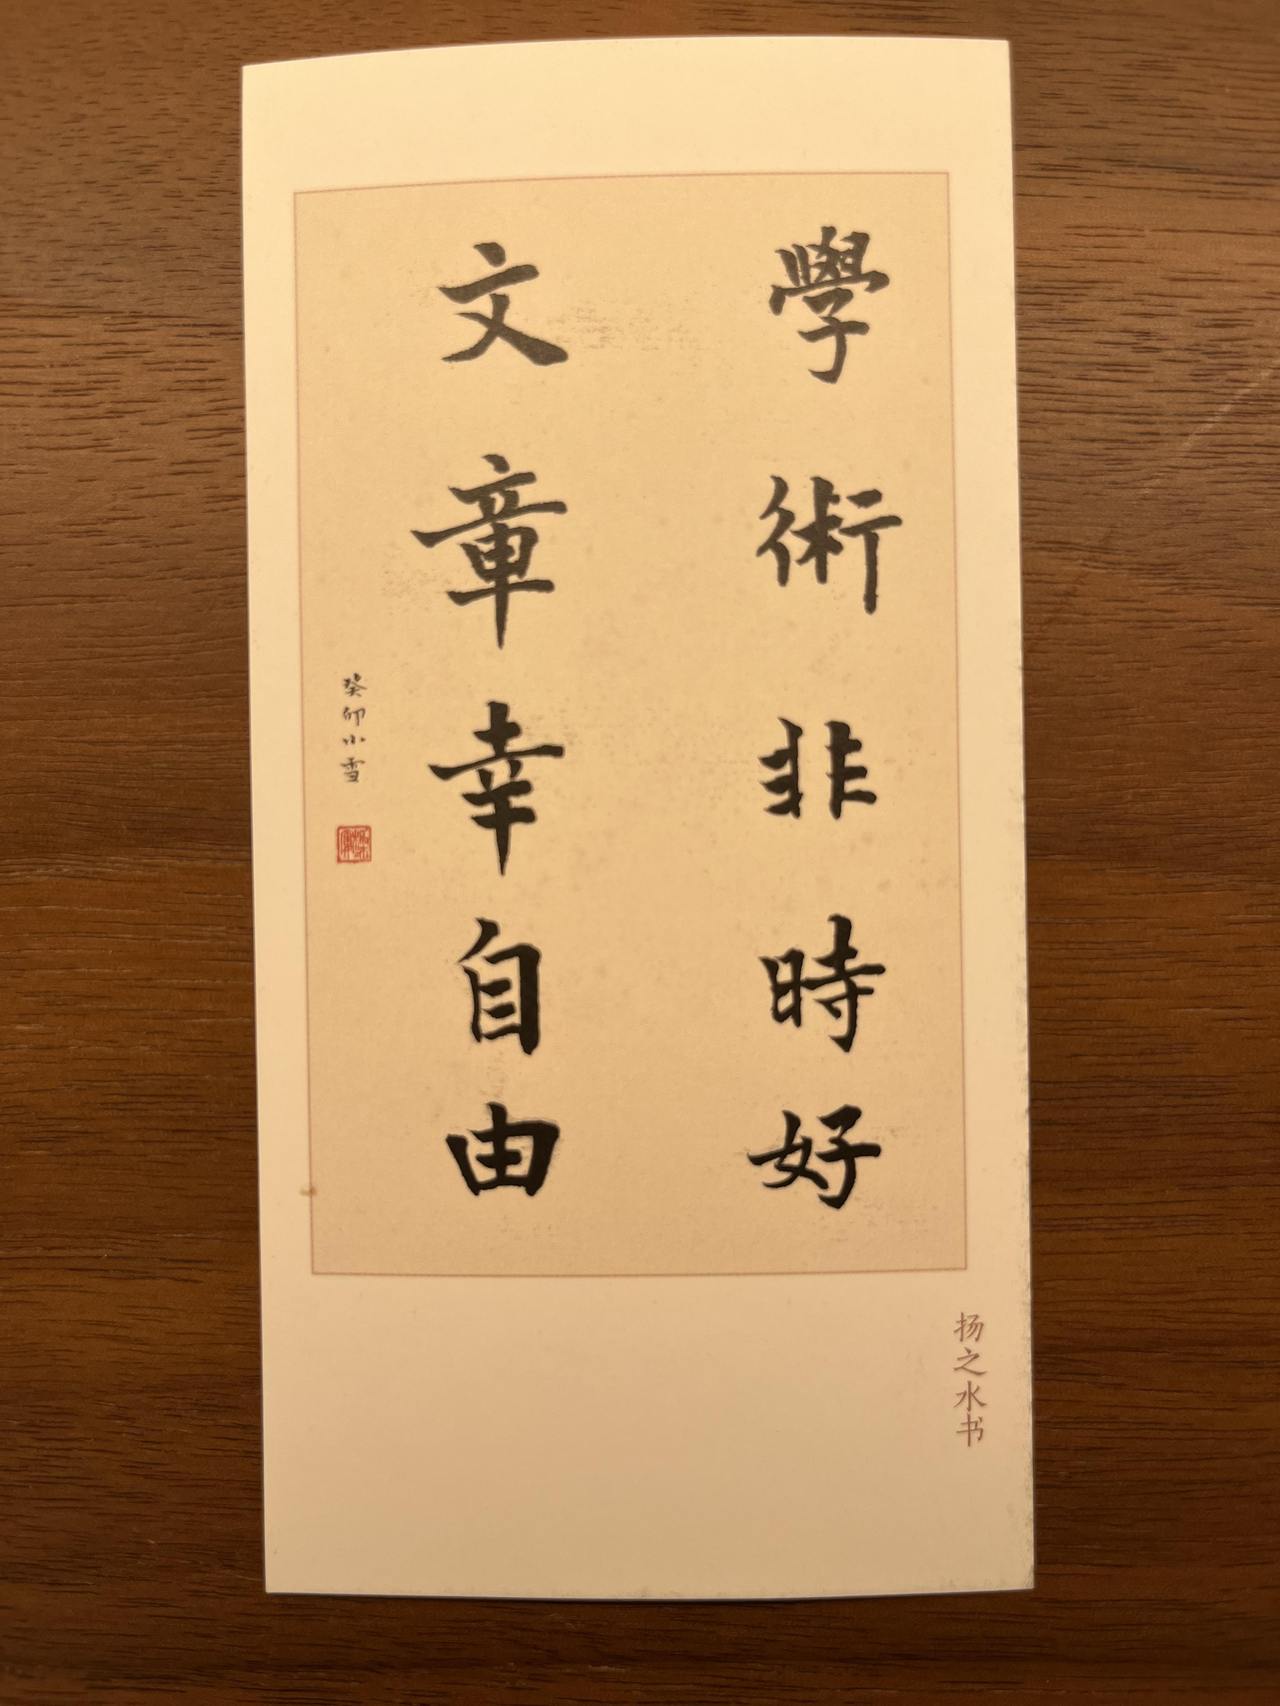 學術非時好
文章幸自由
癸卯小雪
扬之水书